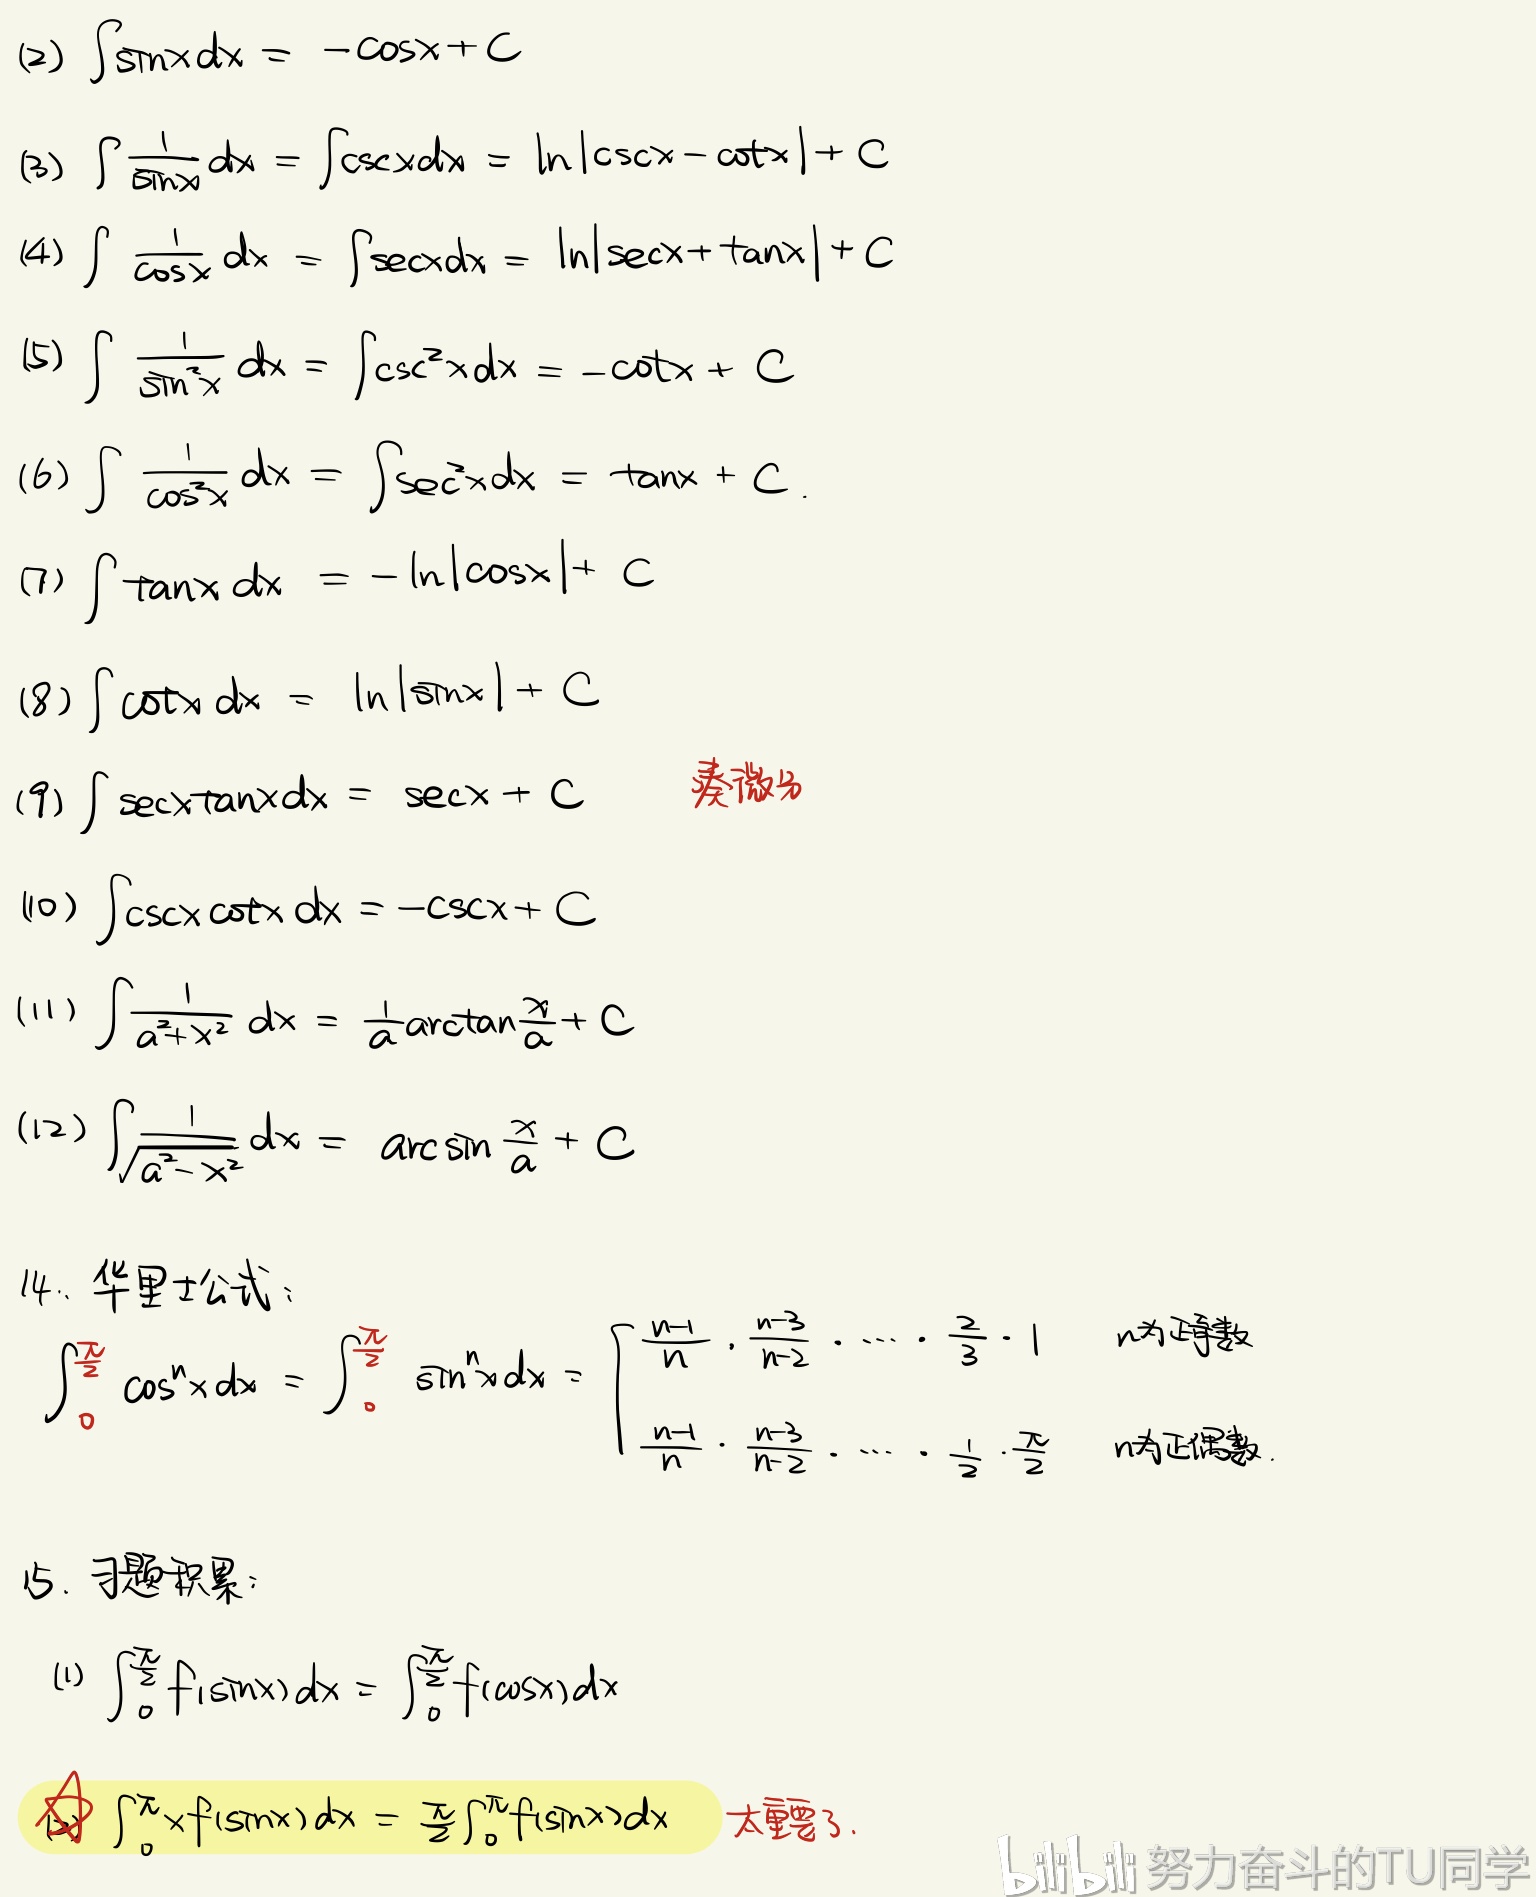 (2) ∫sinxdx = -cosx+C
(3) ∫1/sinx dx = ∫cscxdx = ln|cscx-cotx|+C
(4) ∫1/cosx dx = ∫secxdx = ln|secx+tanx|+C
(5) ∫1/sin²x dx = ∫csc²xdx = -cotx+C
(6) ∫1/cos²x dx = ∫sec²xdx = tanx+C.
(7) ∫tanxdx = -ln|cosx|+C
(8) ∫cotxdx = ln|sinx|+C
(9) ∫secxtanxdx = secx+C 凑微分
(10) ∫cscxcotxdx = -cscx+C
(11) ∫1/(a²+x²) dx = 1/a arctan x/a + C
(12) ∫1/√(a²-x²) dx = arcsin x/a + C
14. 华里士公式:
∫₀^(π/2) cosⁿxdx = ∫₀^(π/2) sinⁿxdx = { (n-1)/n · (n-3)/(n-2) · … · 2/3 · 1 n为正奇数
(n-1)/n · (n-3)/(n-2) · … · 1/2 · π/2 n为正偶数.
15. 习题积累:
(1) ∫₀^(π/2) f(sinx)dx = ∫₀^(π/2) f(cosx)dx
(2) ∫₀^π xf(sinx)dx = π/2 ∫₀^π f(sinx)dx 太重要了.
bilibili 努力奋斗的TU同学